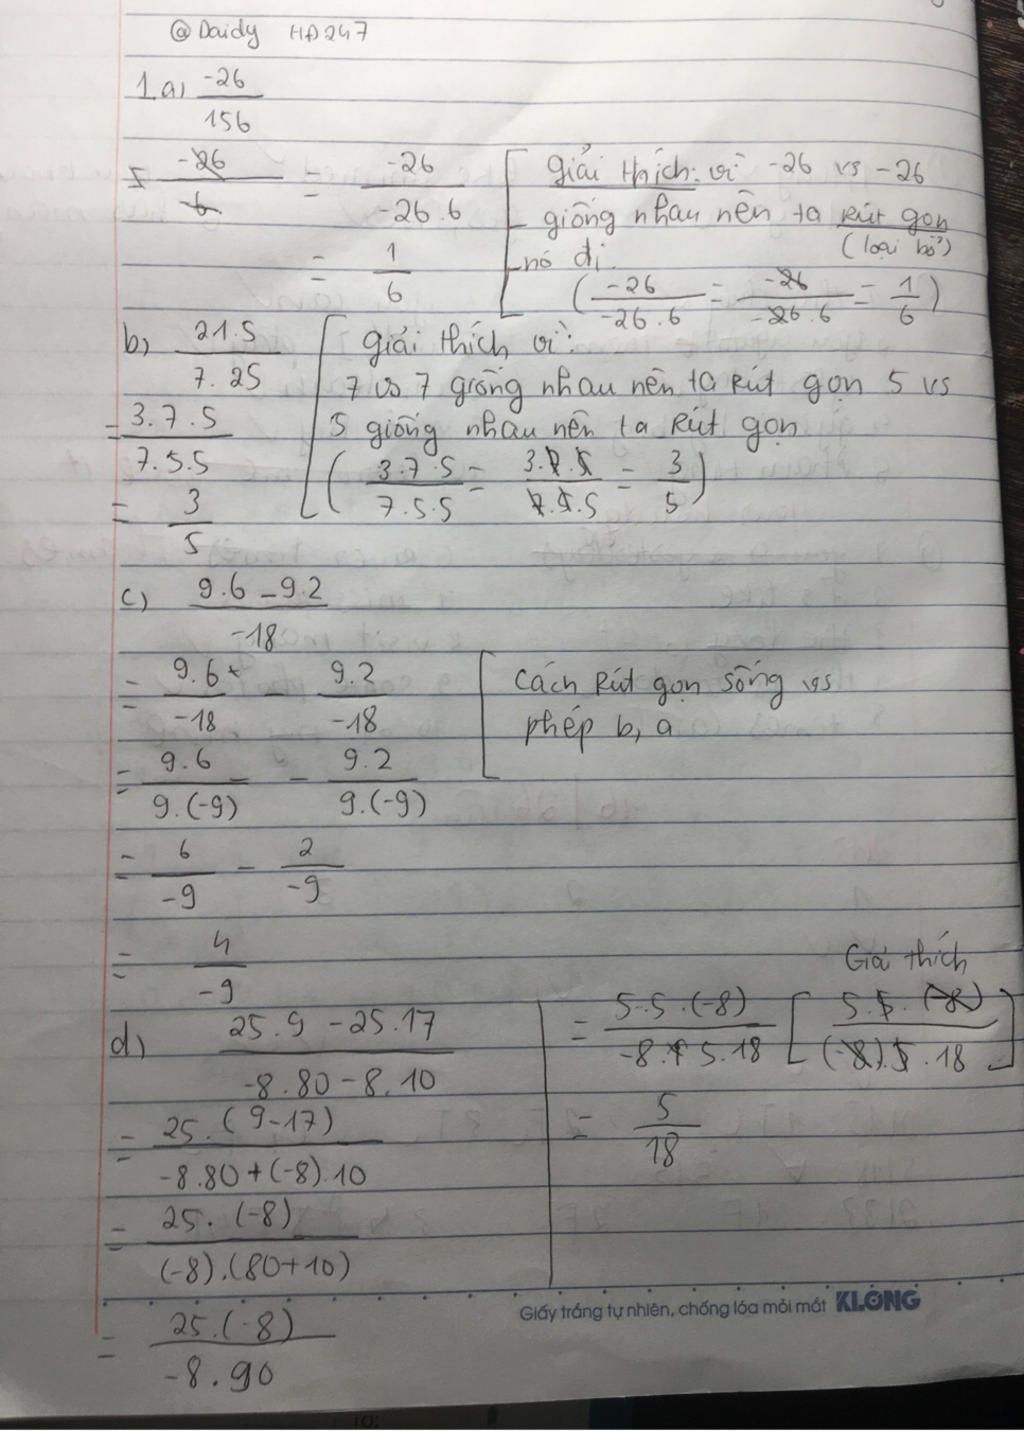 @Daidy HĐ247
1.a) -26/156
= -26/-6 = -26/-26.6
= 1/6
[giải thích: vì -26 vs -26
giống nhau nên ta rút gọn
(loại bỏ)
nó đi
(-26/-26.6 = -26/-26.6 = 1/6)
b) 21.5/7.25
= 3.7.5/7.5.5
= 3/5
[giải thích vì:
7 vs 7 giống nhau nên ta Rút gọn 5 vs
5 giống nhau nên ta Rút gọn
(3.7.5/7.5.5 = 3.7.5/7.5.5 = 3/5)
c) 9.6-9.2/-18
= 9.6/-18 - 9.2/-18
= 9.6/9.(-9) - 9.2/9.(-9)
= 6/-9 - 2/-9
= 4/-9
[Cách Rút gọn sống vs
phép b, a
d) 25.9-25.17/-8.80-8.10
= 25.(9-17)/-8.80+(-8).10
= 25.(-8)/(-8).(80+10)
= 25.(-8)/-8.90
Giả thích
= 5.5.(-8)/-8.5.18 [5.5.(-8)/(-8).5.18]
= 5/18
Giấy trắng tự nhiên, chống lóa mỏi mắt KLONG